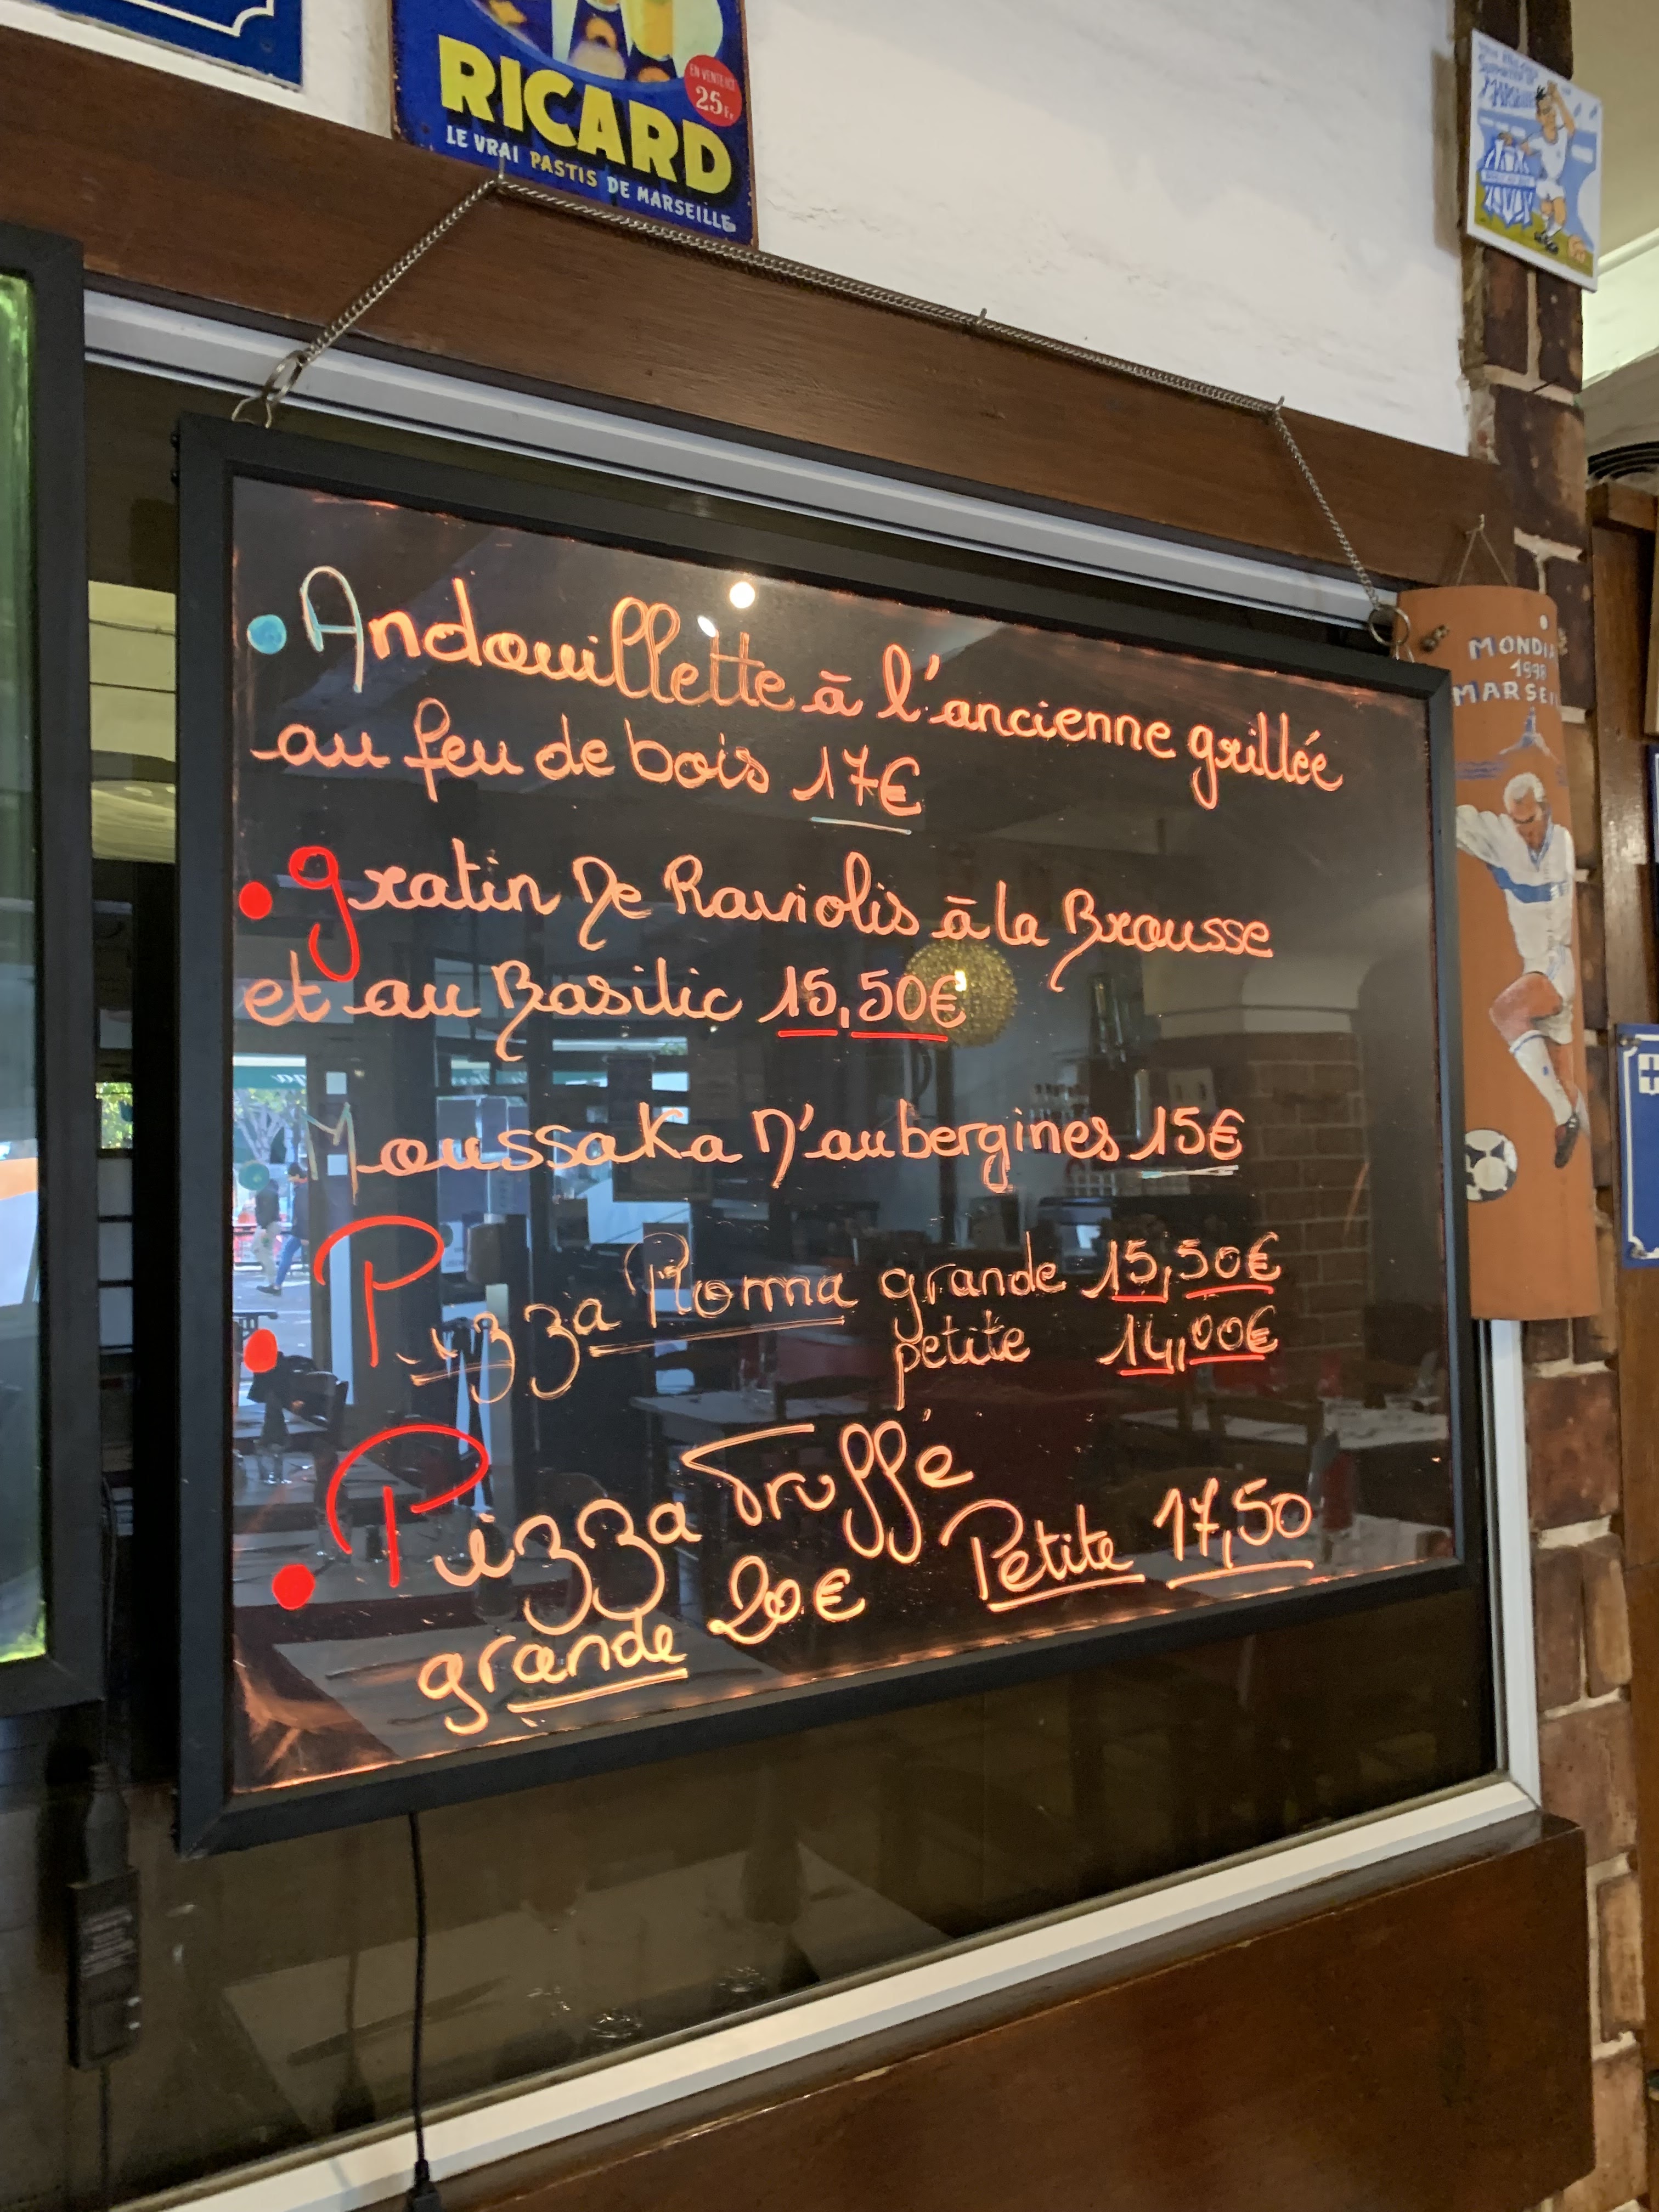 RICARD
EN VENTE ICI
25Fr
LE VRAI PASTIS DE MARSEILLE
MONDIA
1998
MARSEI
Andouillette à l'ancienne grillée
au feu de bois 17€
gratin de Raviolis à la Brousse
et au Basilic 15,50€
Moussaka d'aubergines 15€
Pizza Roma grande 15,50€
petite 14,00€
Pizza Truffé
grande 20€ Petite 17,50